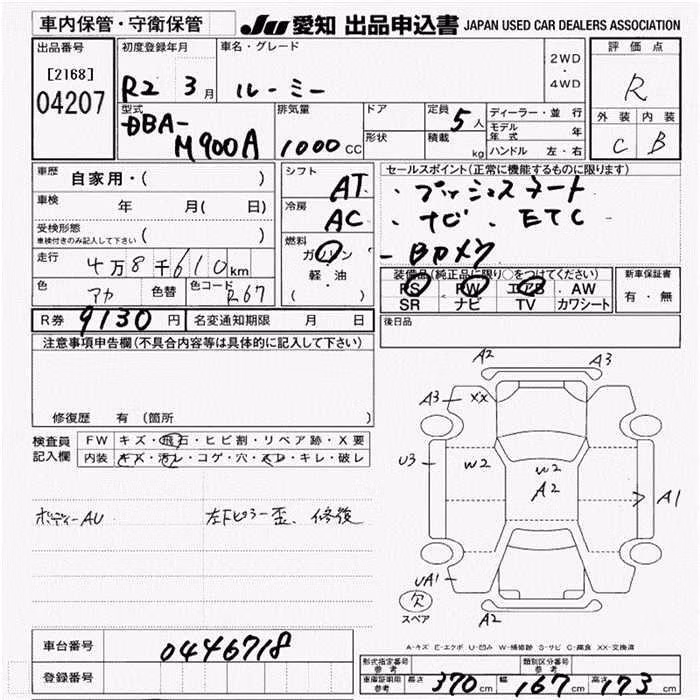 車内保管・守衛保管 JU 愛知 出品申込書 JAPAN USED CAR DEALERS ASSOCIATION
出品番号 初度登録年月 車名・グレード 2WD・4WD 評価点
[2168] R2 3月 ルーミー R
04207 型式 排気量 ドア 定員 5人 ディーラー・並行 外装 内装
DBA- モデル年式 年 C B
M900A 1000cc 形状 積載 kg ハンドル 左・右
車歴 自家用・( ) シフト AT セールスポイント(正常に機能するものに限ります)
車検 年 月( 日) 冷房 AC ・プッシュスタート
受検形態 車検付きのみ記入して下さい ( ) 燃料 ・ナビ ・ETC
走行 4万8千610km ガソリン ・Bカメラ
色 アカ 色替 色コード R67 軽・油 ( ) 装備品(純正品に限り○をつけてください) 新車保証書
PS PW エアB AW 有・無
SR ナビ TV カワシート
R券 9130円 名変通知期限 月 日 後日品
注意事項申告欄(不具合内容等は具体的に記入して下さい)
修復歴 有(箇所 )
検査員記入欄 FW キズ・飛石・ヒビ割・リペア跡・X要
内装 キズ・汚レ・コゲ・穴・スレ・キレ・破レ
ボディーAU 左FピラーF歪、修復
A2 A3
A3 XX
U3 W2 W2
A2 A1
UA1
欠
スペア A2
A-キズ E-エクボ U-凹み W-補修跡 S-サビ C-腐食 XX-交換済
車台番号 0446718
登録番号
形式指定番号 参考 類別区分番号 参考
車庫証明用 参考 長さ 370cm 幅 167cm 高さ 173cm